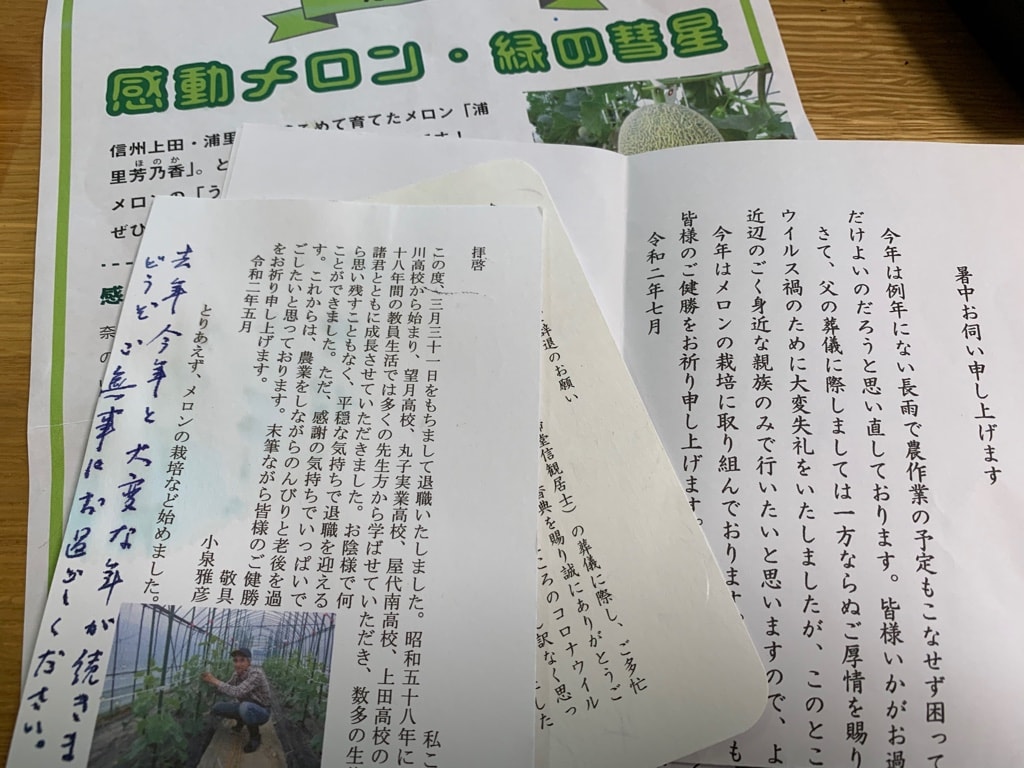 感動メロン・緑の彗星
信州上田・浦里
こめて育てたメロン「浦
ほのか
里芳乃香」。と
メロンの「う
ぜひ
感
暑中お伺い申し上げます
今年は例年にない長雨で農作業の予定もこなせず困って
だけよいのだろうと思い直しております。皆様いかがお過
さて、父の葬儀に際しましては一方ならぬご厚情を賜り
ウイルス禍のために大変失礼をいたしましたが、このとこ
近辺のごく身近な親族のみで行いたいと思いますので、よ
今年はメロンの栽培に取り組んでおります。
も
皆様のご健勝をお祈り申し上げます。
令和二年七月
辞退のお願い
堂信観居士）の葬儀に際し、ご多忙
香典を賜り誠にありがとうご
ころのコロナウイル
訳なく思っ
した
拝啓
私こ
この度、三月三十一日をもちまして退職いたしました。昭和五十八年に
川高校から始まり、望月高校、丸子実業高校、屋代南高校、上田高校の
十八年間の教員生活では多くの先生方から学ばせていただき、数多の生
諸君とともに成長させていただきました。お陰様で何
ら思い残すこともなく、平穏な気持ちで退職を迎える
ことができました。ただ、感謝の気持ちでいっぱいで
す。これからは、農業をしながらのんびりと老後を過
ごしたいと思っております。末筆ながら皆様のご健勝
をお祈り申し上げます。
敬具
令和二年五月
小泉雅彦
とりあえず、メロンの栽培など始めました。
去年今年と大変な年が続きま
どうぞご無事にお過ごしください。